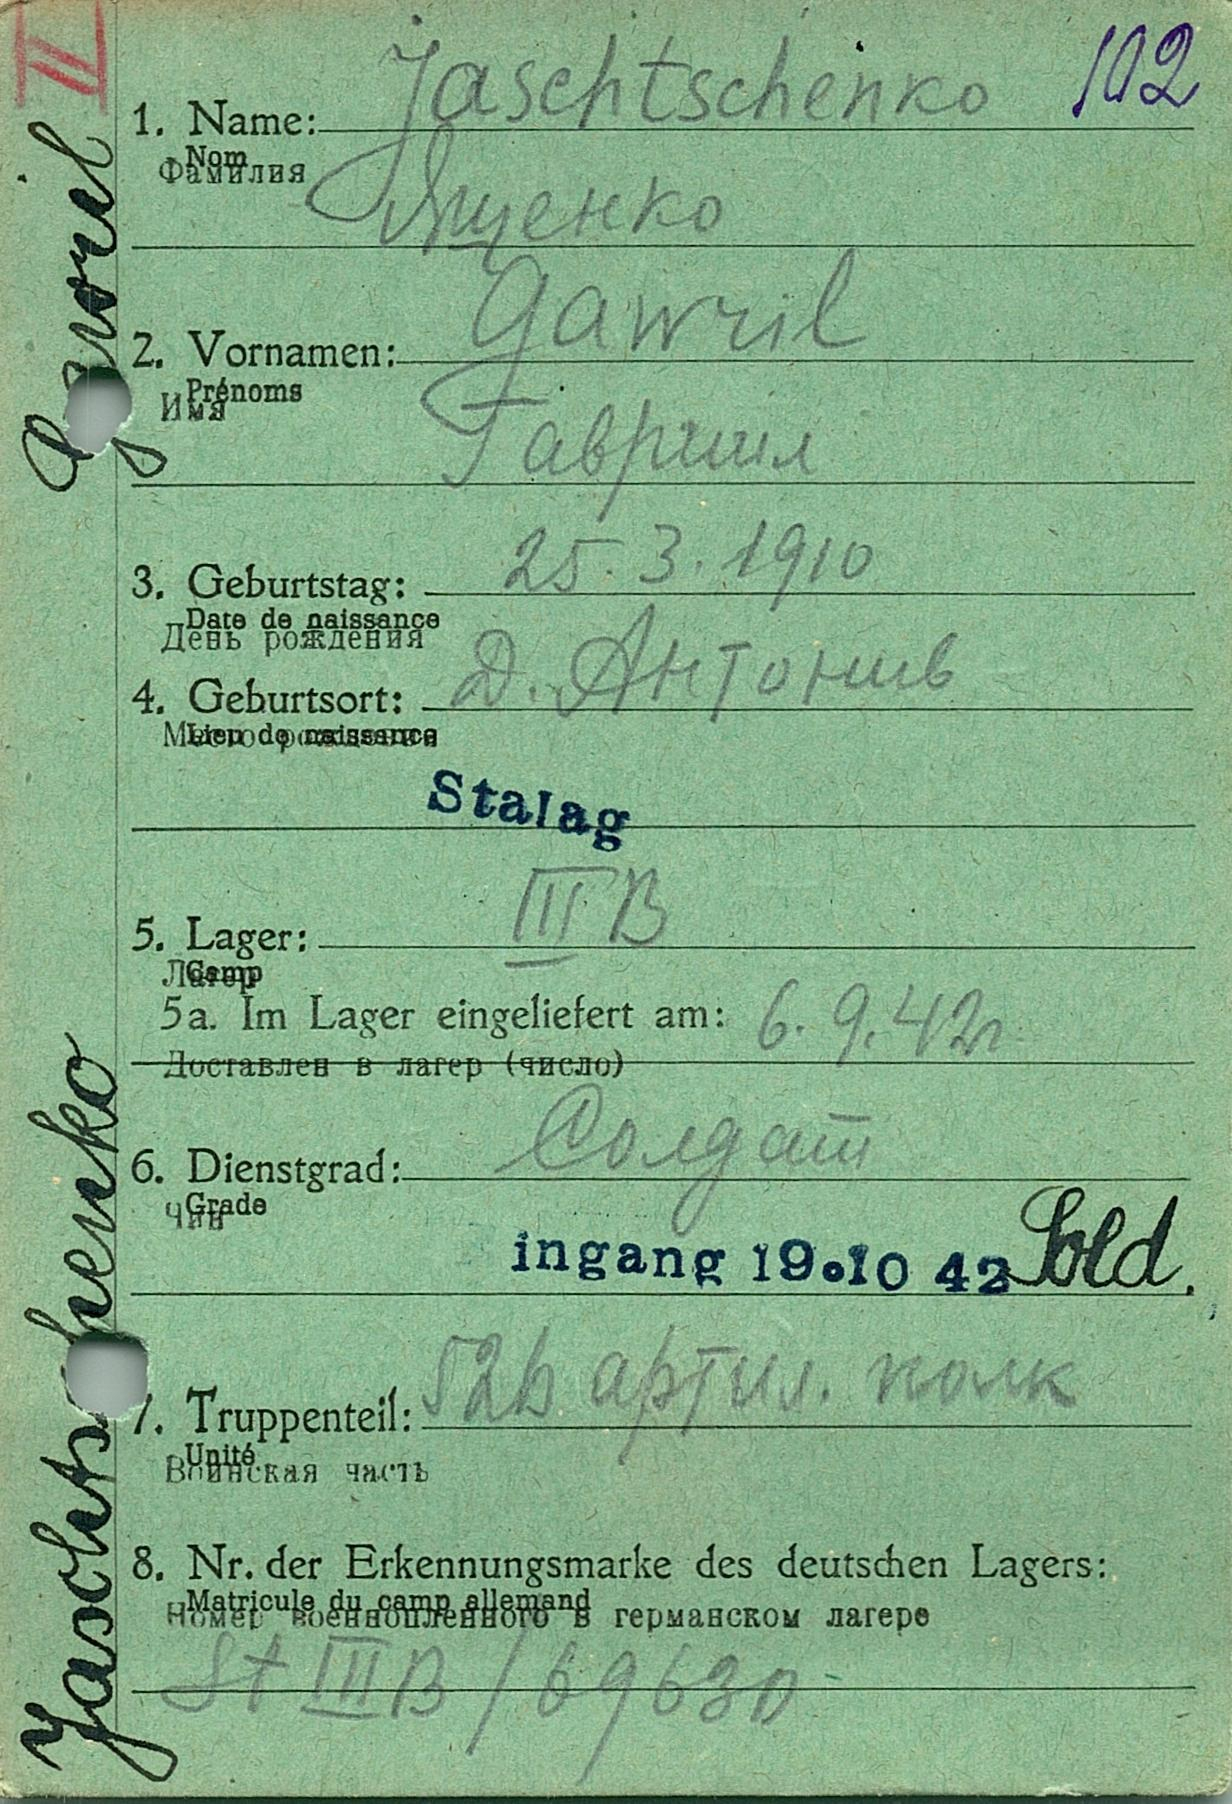 II
102
1. Name: Jaschtschenko
Nom
Фамилия
Ященко
2. Vornamen: Gawril
Prénoms
Имя
Гавриил
3. Geburtstag: 25.3.1910
Date de naissance
День рождения
4. Geburtsort: Д. Антонив
Lieu de naissance
Место рождения
Stalag
5. Lager: III B
Camp
Лагерь
5a. Im Lager eingeliefert am: 6.9.42г.
Доставлен в лагер (число)
6. Dienstgrad: Солдат
Grade
Чин
ingang 19.10 42 Sold.
7. Truppenteil: артил. полк
Unité
Воинская часть
8. Nr. der Erkennungsmarke des deutschen Lagers:
Matricule du camp allemand
Номер военнопленного в германском лагере
St III B / 69630
Jaschtschenko Gawril